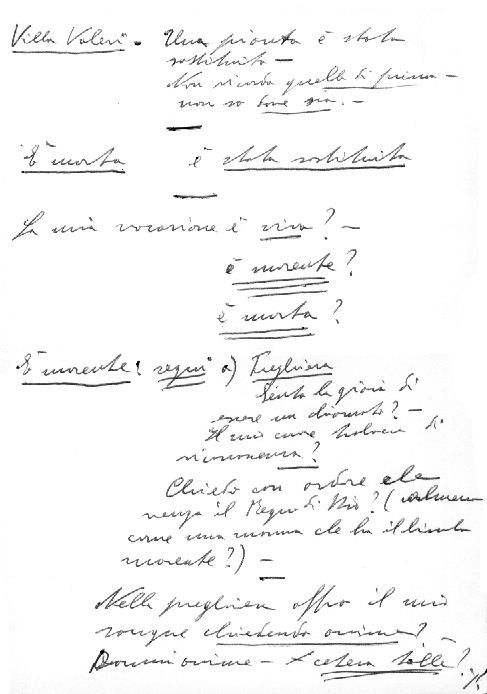 Villa Valeri - Una pianta è stata
sostituita -
Non ricordo quella di prima -
non so dove sia. -
È morta è stata sostituita
La mia vocazione è viva? -
è morente?
è morta?
È morente: segni a) Preghiera
Sento la gioia di
essere un chiamato? -
Il mio cuore trabocca di
riconoscenza?
Chiedo con ardore che
venga il Regno di Dio? (
come una mamma che ha il bimbo
morente?) -
Nella preghiera offro il mio
sangue chiedendo anime?
Da mihi animas - + cetera tolle?